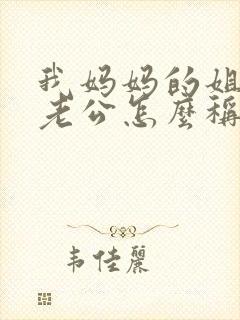 我妈妈的姐
老公怎麼稱
韦佳丽